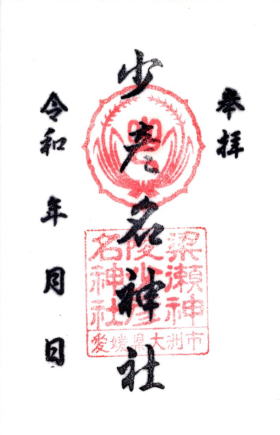 奉拝
少彦名神社
梁瀬神
陵少彦
名神社
愛媛県大洲市
令和　年　月　日